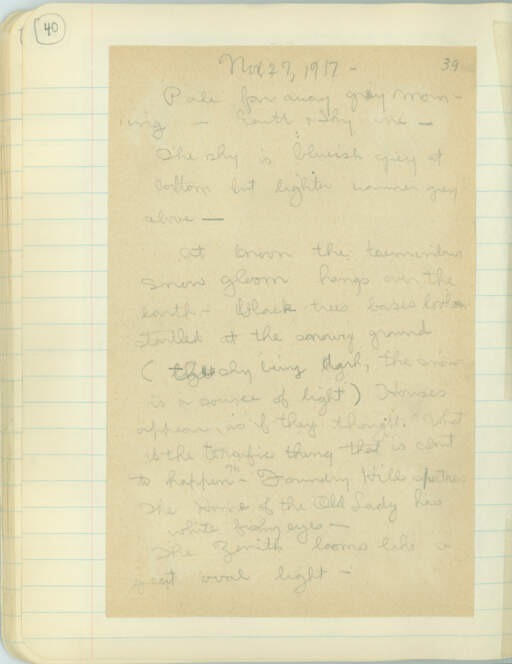 40
39
Nov 27, 1917 -
Pale far away grey morn-
ing - Earth & sky one -
The sky is blueish grey at
bottom but lighter warmer grey
above -
At noon the tremendous
snow gloom hangs over the
earth - Black trees bases look
startled at the snowy ground
( the sky being dark, the snow
is a source of light ) Houses
appear as if they thought "What
is the terrific thing that is about
to happen" - Foundry Hill
The home of the Old Lady has
white eyes -
The Zenith looms like a
great oval light -